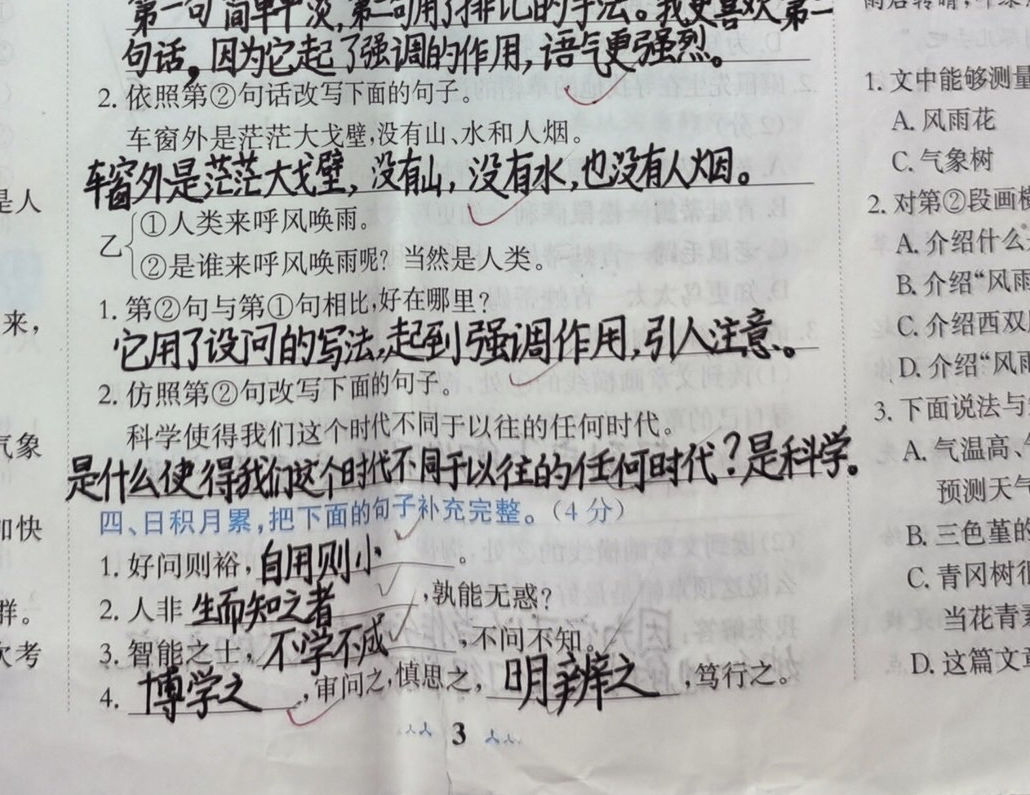 第一句简单平淡,第二句用了排比的手法。我更喜欢第二
句话,因为它起了强调的作用,语气更强烈。
2. 依照第②句话改写下面的句子。
车窗外是茫茫大戈壁,没有山、水和人烟。
车窗外是茫茫大戈壁,没有山,没有水,也没有人烟。
乙
①人类来呼风唤雨。
②是谁来呼风唤雨呢?当然是人类。
1. 第②句与第①句相比,好在哪里?
它用了设问的写法,起到强调作用,引人注意。
2. 仿照第②句改写下面的句子。
科学使得我们这个时代不同于以往的任何时代。
是什么使得我们这个时代不同于以往的任何时代?是科学。
四、日积月累,把下面的句子补充完整。(4分)
1. 好问则裕,自用则小。
2. 人非生而知之者,孰能无惑?
3. 智能之士,不学不成,不问不知。
4. 博学之,审问之,慎思之,明辨之,笃行之。
3
是人
来,
气象
加快
群。
次考
1. 文中能够测量
A. 风雨花
C. 气象树
2. 对第②段画横
A. 介绍什么
B. 介绍“风雨
C. 介绍西双
D. 介绍“风雨
3. 下面说法与
A. 气温高、
预测天气
B. 三色堇的
C. 青冈树很
当花青素
D. 这篇文章